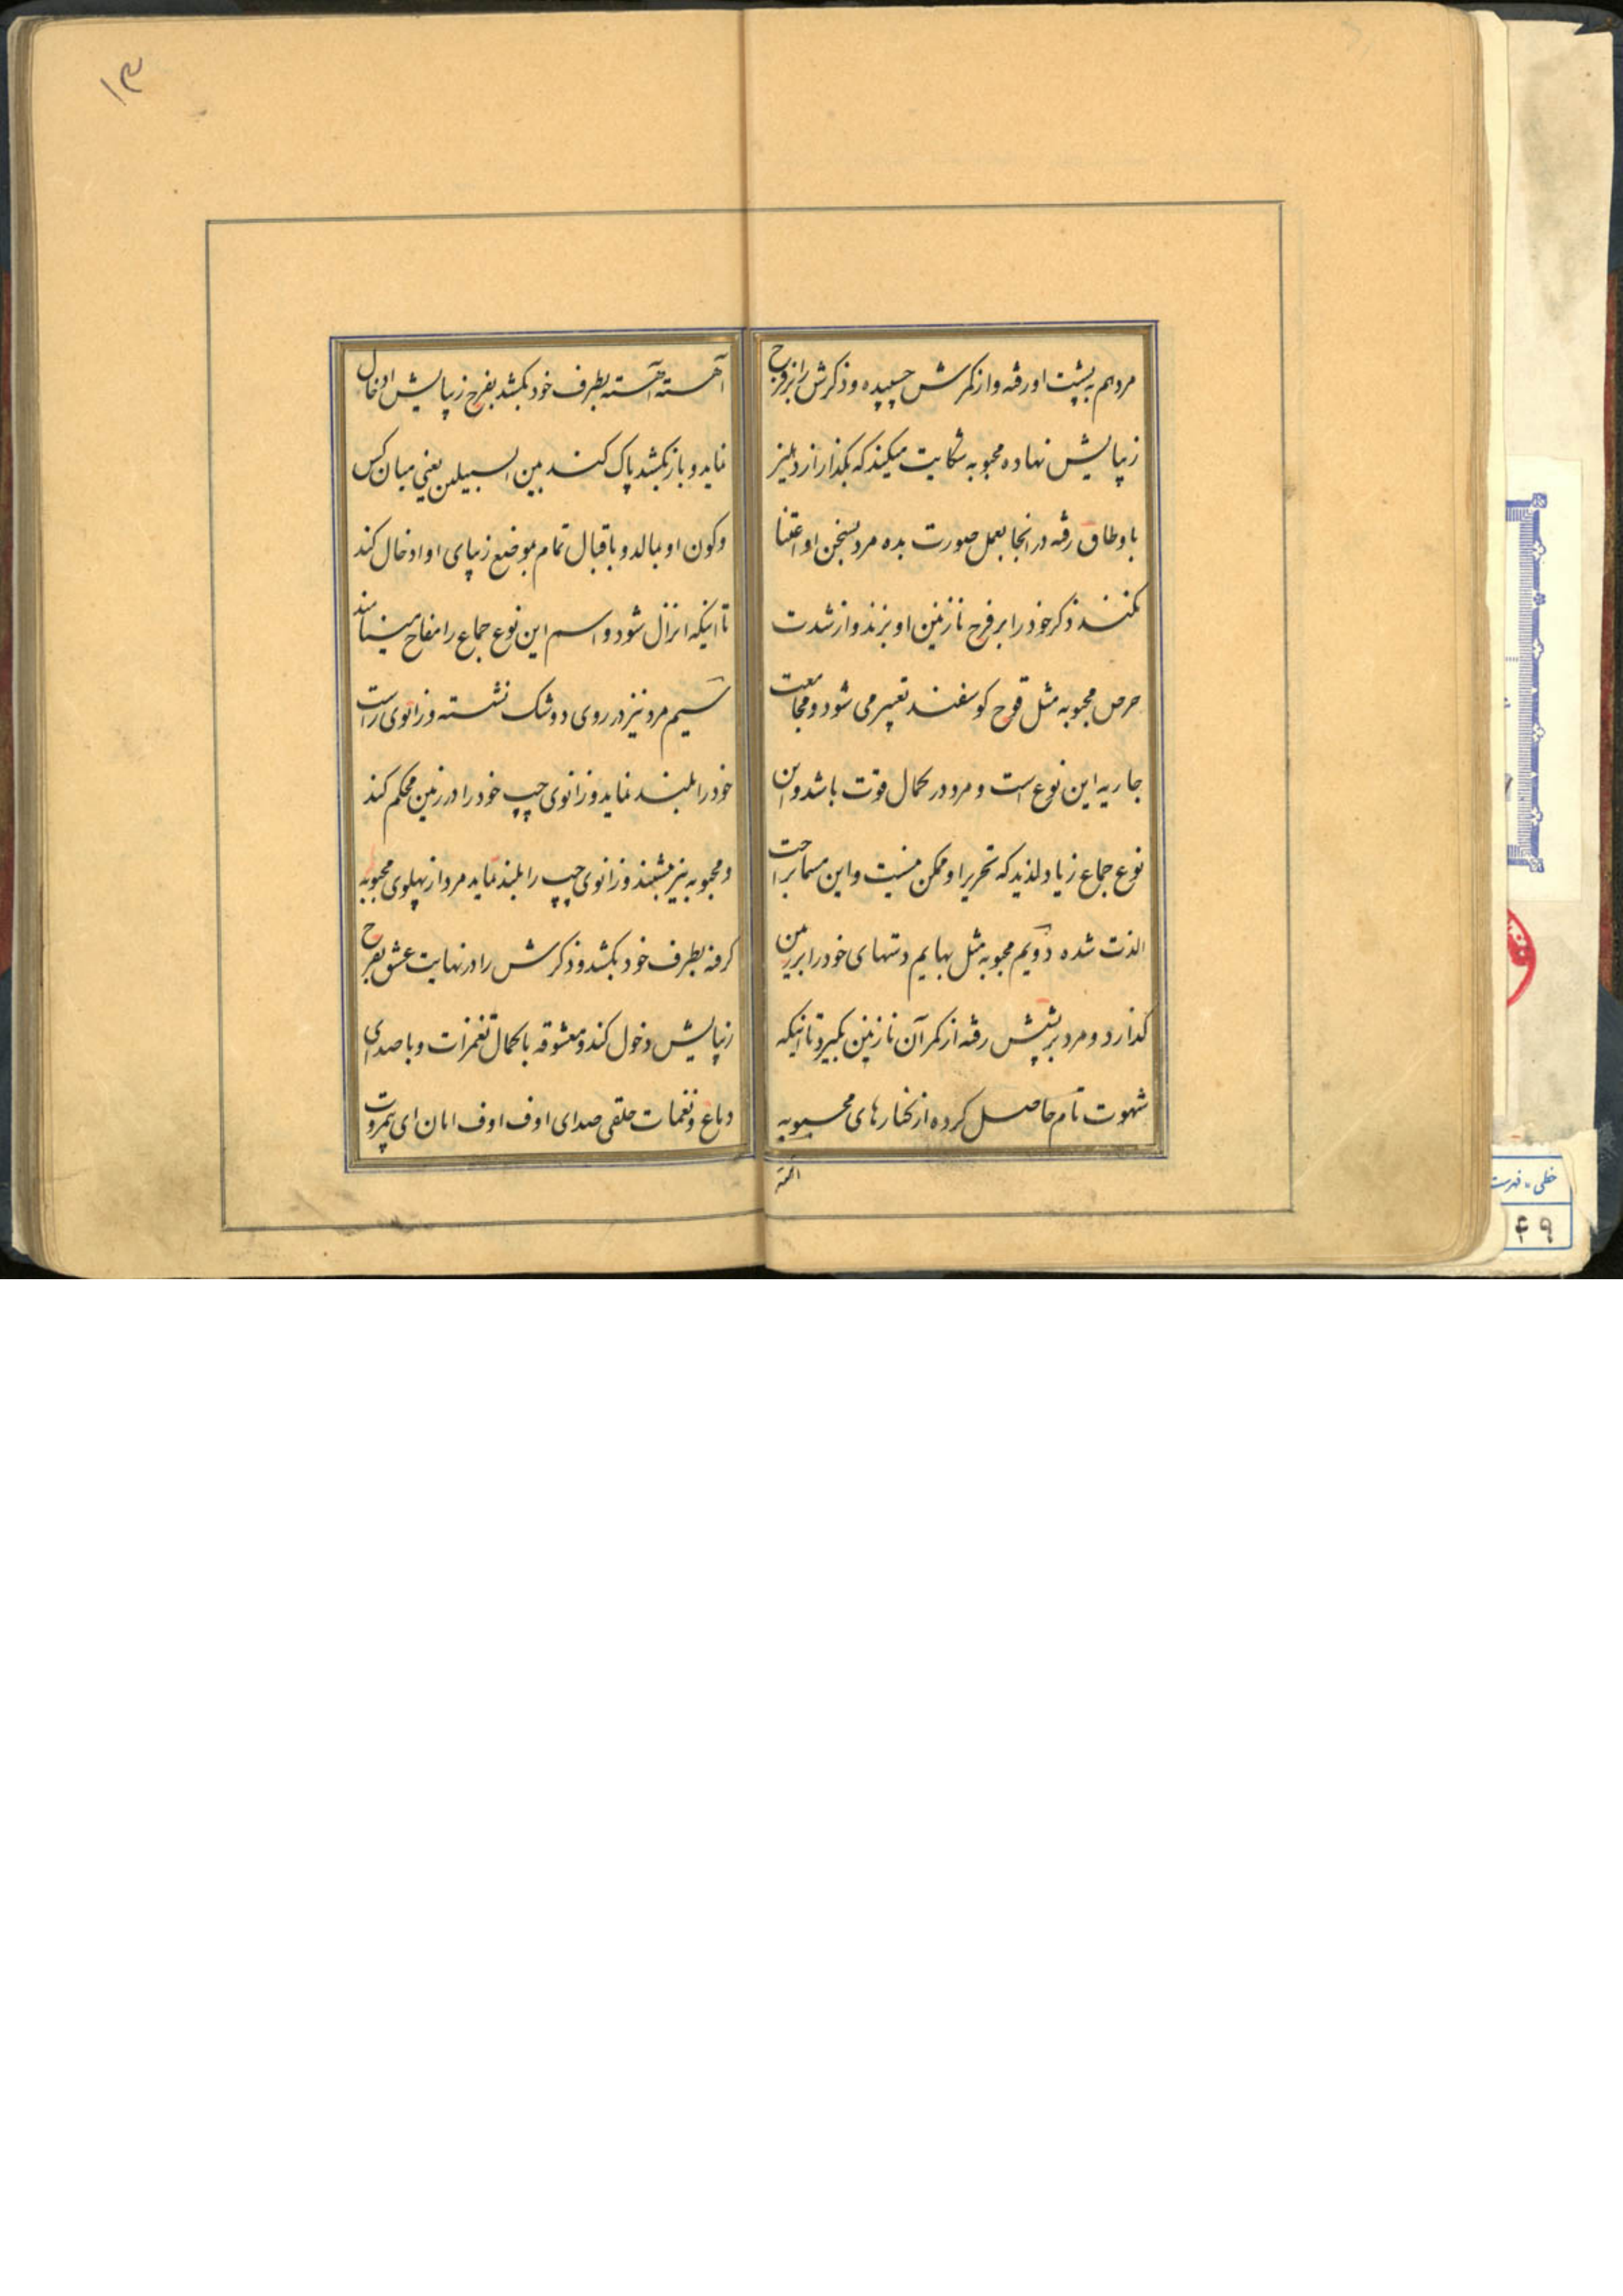 ۱۳
مردهم به پشت او رفته و از کمرش چسپیده و ذکرش را بر فرج
زیبایش نهاده محبوبه شکایت میکند که بگذار از دهلیز
باوطاق رفته در انجا بعمل صورت بده مرد بسخن او اعتنا
نکند ذکر خود را بر فرج نازنین او بزند و از شدت
حرص محبوبه مثل قوچ کوسفند تعبیر می شود و مجامعت
جاریه این نوع است و مرد در کمال قوت باشد و این
نوع جماع زیاد لذیذ که تحریر او ممکن نیست و این مسما براحت
الذت شده دویم محبوبه مثل بهایم دستهای خود را بر زمین
گذارد و مرد بر پشتش رفته از کمر آن نازنین بگیرد تا اینکه
شهوت تام حاصل کرده از کنارهای محبوبه
آهسته
آهسته آهسته بطرف خود بکشد بفرج زیبایش ادخال
نماید و باز بکشد پاک کند بین السبیلین یعنی میان کس
و کون او بمالد و باقبال تمام بموضع زیبای او ادخال کند
تا اینکه انزال شود و اسم این نوع جماع را مفاح مینامند
سیم مرد نیز در روی دوشک نشسته و زانوی راست
خود را بلند نماید و زانوی چپ خود را در زمین محکم کند
و محبوبه نیز بنشیند و زانوی چپ را بلند نماید مرد از پهلوی محبوبه
گرفته بطرف خود بکشد و ذکرش را در نهایت عشق بفرج
زیبایش دخول کند و معشوقه با کمال تغمزات و با صدای
دماغ و نغمات حلقی صدای اوف اوف امان ای بیمروت
خطی - فهرست
۴۹